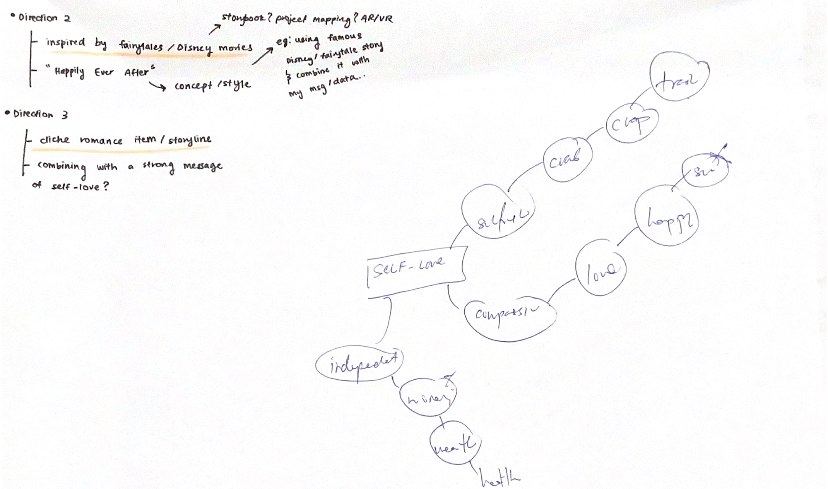 • Direction 2
storybook? project mapping? AR/VR
inspired by fairytales / Disney movies
eg: using famous
Disney/ fairytale story
& combine it with
my msg/data..
"Happily Ever After"
concept/style
• Direction 3
cliche romance item / storyline
combining with a strong message
of self-love?
SELF-LOVE
love
happy
money
health